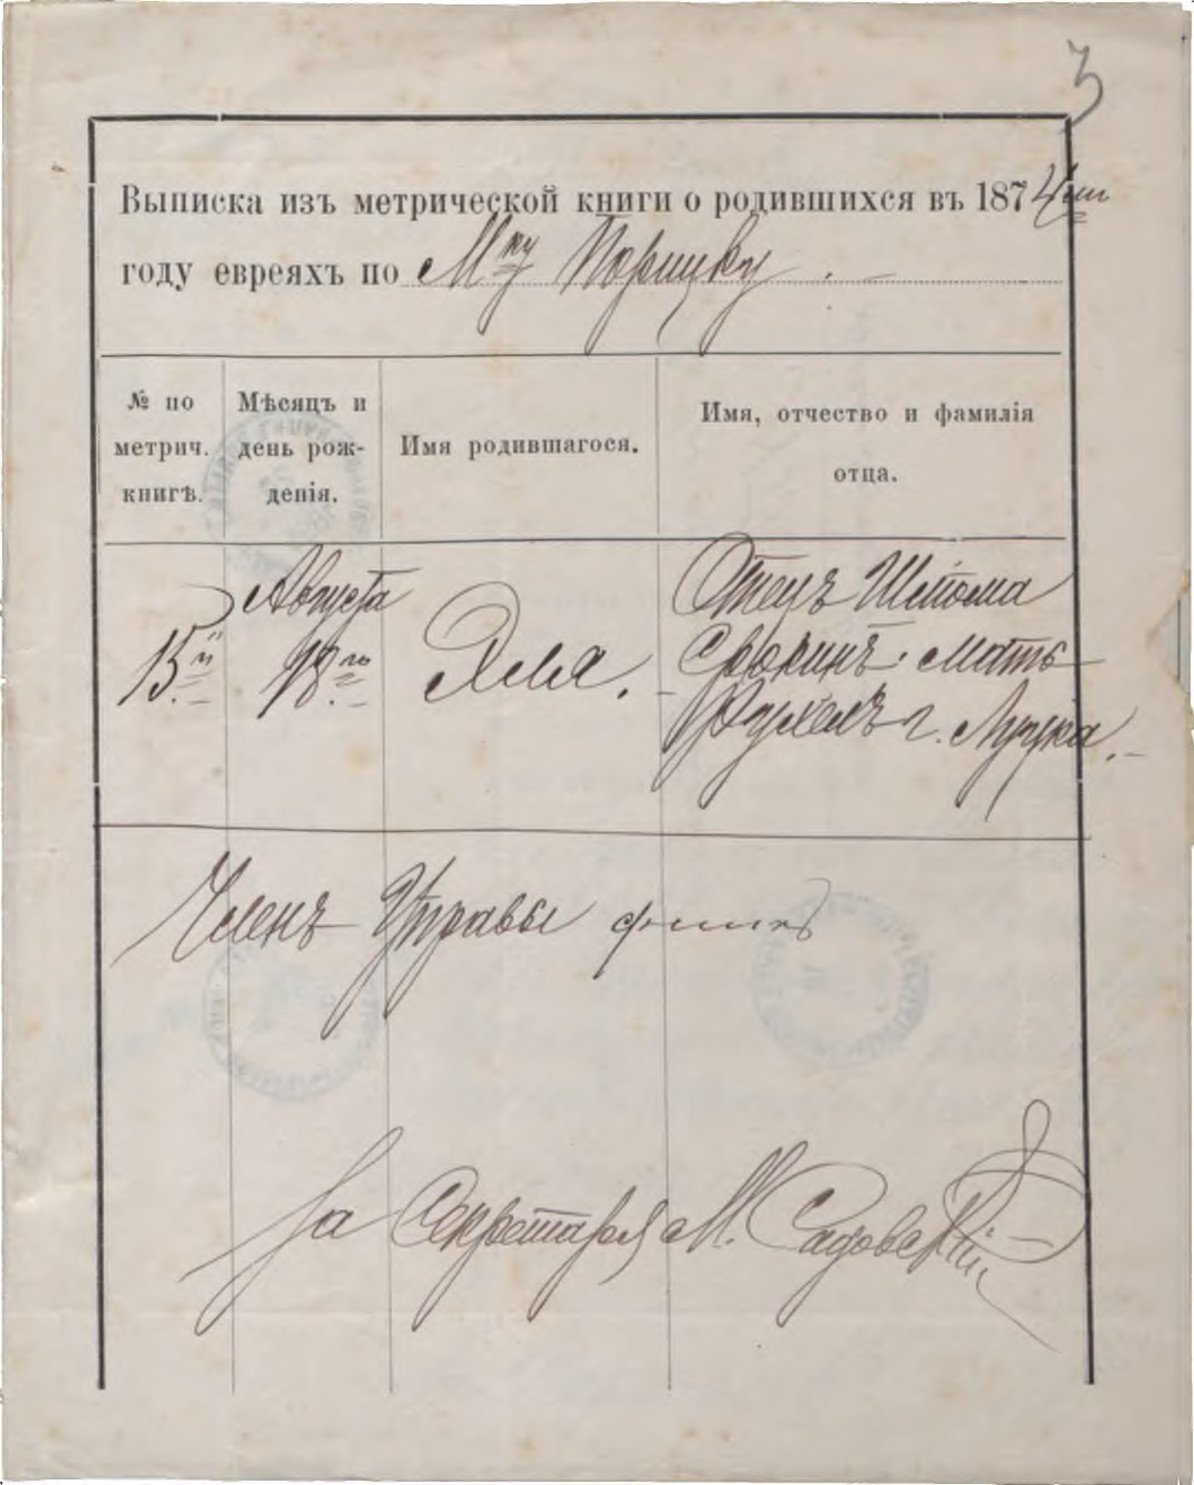 3
Выписка изъ метрической книги о родившихся въ 1874 мъ
году евреяхъ по М ку Порицку . —
№ по метрич. книгѣ.
Мѣсяцъ и день рожденія.
Имя родившагося.
Имя, отчество и фамилія
отца.
15й
Августа
18го
Эля.
Отецъ Шлiома
Мать
Рухель г. Луцка.
Членъ Управы
За Секретаря М. Садовскій